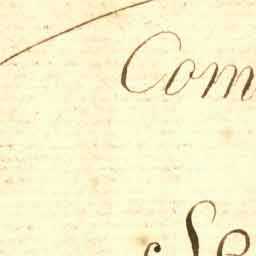 Com
Se